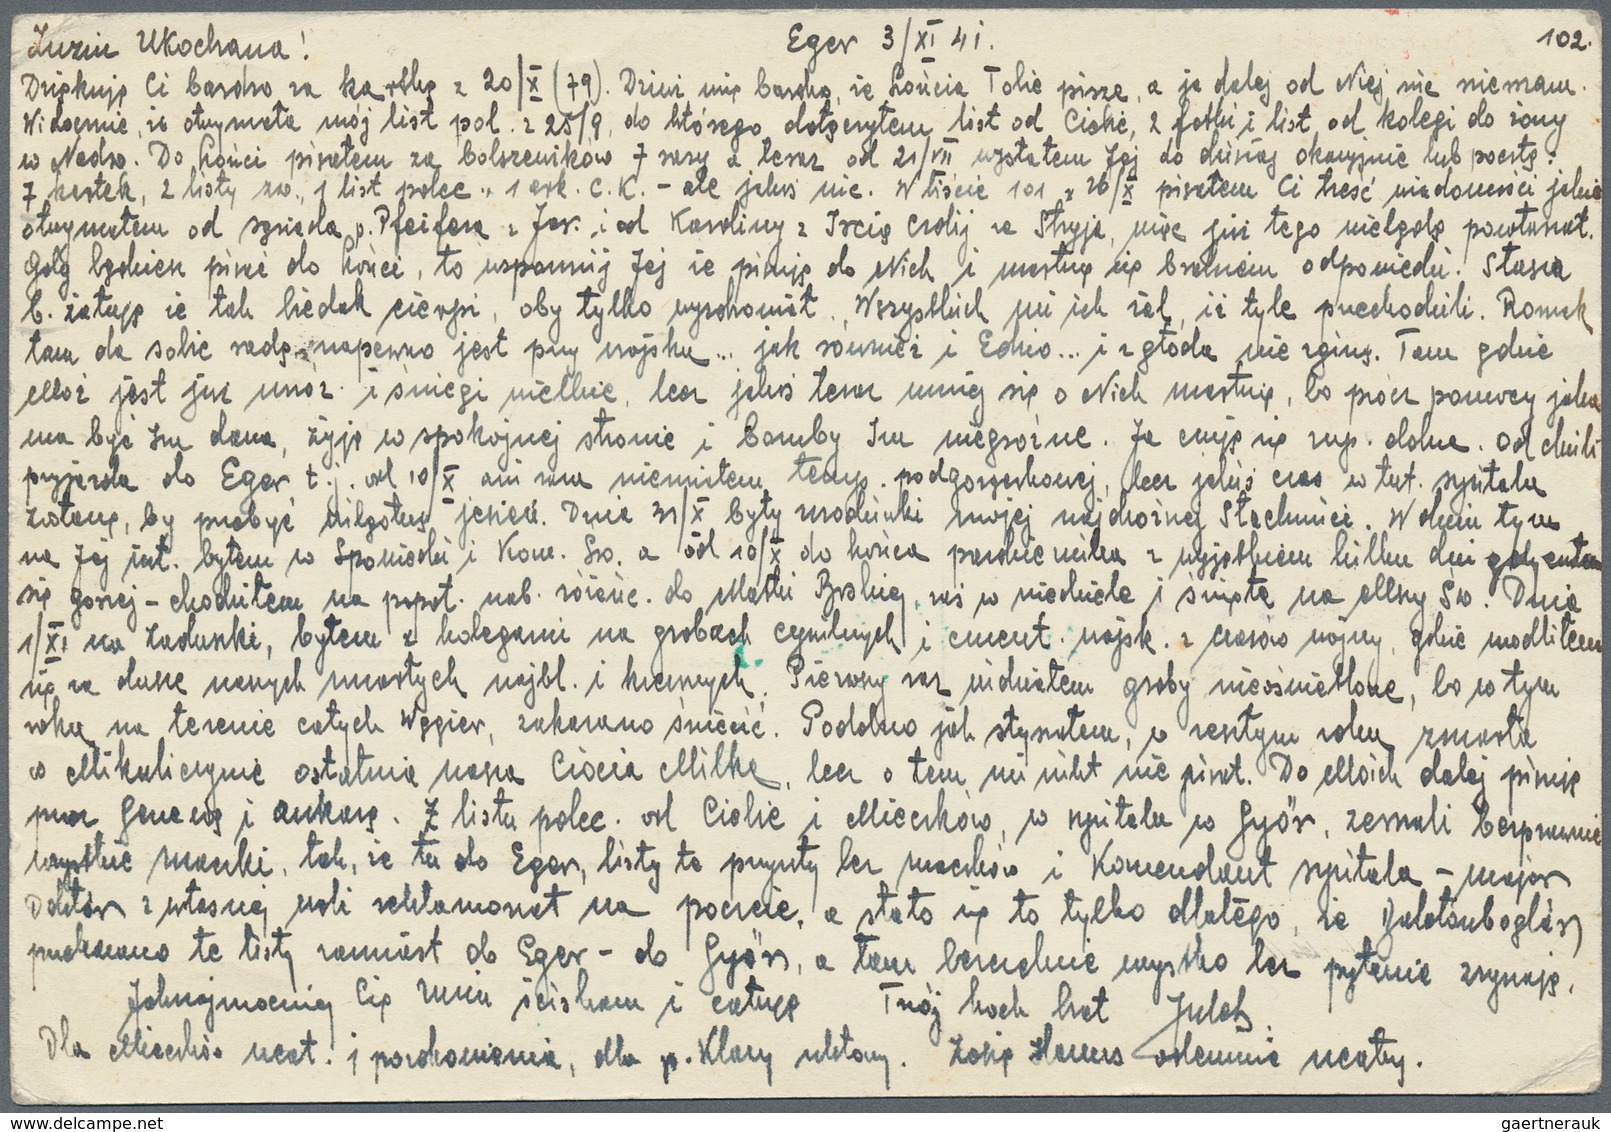 Luziu Ukochana! Eger 3/XI 41. 102.
Dziękuję Ci bardzo za kartkę z 20/X (79). Dziwi mię bardzo, że Tobie pisze, a ja dalej od Niej nic nie mam.
Widocznie, że otrzymała mój list pol. z 25/9, do którego dołączyłem list od Ciebie, 2 fotki i list od kolegi do żony
w Nadw. Do pisałem za bolszewików 7 razy a teraz od 21/VII wysłałem Jej do dzisiaj okazyjnie lub pocztą:
7 kartek, 2 listy zw., 1 list polec. 1 ark. C.K. - ale jakoś nic. W liście 101 z 26/X pisałem Ci treść wiadomości jakie
otrzymałem od sąsiada p. Pfeifera z Jar. i od Karoliny z za Stryja, więc już tego nie będę powtarzał.
Gdy będziesz pisać do to wspomnij Jej że piszę do Nich i martwię się brakiem odpowiedzi. Stasia
b. żałuję że tak biedak cierpi, oby tylko wyzdrowiał. Wszystkich mi ich żal, że tyle przechodzili. Romek
tam da sobie radę, napewno jest przy wojsku... jak również i Edzio... i z głodu nie zginą. Tam gdzie
Moś jest już mróz i śniegi wielkie, lecz jakoś teraz mniej się o Nich martwię, bo prócz pomocy jaka
ma być Im dana, żyję w spokojnej stronie i bomby Im niegroźne. Ja czuję się zup. dobrze. Od chwili
przyjazdu do Eger t.j. od 10/X ani razu nie miałem temp. podgorączkowej, lecz jakiś czas w tut. szpitalu
zostanę, by przebyć wilgotną jesień. Dnia 31/X były urodzinki mojej najdroższej Stachnisi. W dniu tym
na Jej int. byłem w Spowiedzi i Kom. Św. a od 10/X do końca października z wyjątkiem kilku dni gdy czułem
się gorzej - chodziłem na popoł. nab. różańc. do Matki Boskiej, zaś w niedziele i święta na Mszę Św. Dnia
1/XI na Zaduszki, byłem z kolegami na grobach cywilnych i cment. wojsk. z czasów wojny, gdzie modliłem
się za dusze naszych zmarłych najbl. i krewnych. Pierwszy raz widziałem groby nieoświetlone, bo w tym
roku na terenie całych Węgier, zakazano świecić. Podobno jak słyszałem, w zeszłym roku zmarła
w Mikuliczynie ostatnia nasza Ciocia Milka, lecz o tem mi nikt nie pisał. Do Moich dalej piszę
przez Genewę i Ankarę. Z listu polec. od Ciebie i Miecków, w szpitalu w Győr, zerwali bezprawnie
wszystkie znaczki, tak, że tu do Eger, listy te przyszły bez znaczków i Komendant szpitala - major
Doktor z własnej woli reklamował na poczcie, a stało się to tylko dlatego, że Balatonboglár
przekazano te listy zamiast do Eger - do Győr, a tam bezczelnie wszystko bez pytania zrywają.
Jaknajmocniej Cię Luziu ściskam i całuję Twój koch. brat Julek
Dla Miecków ucał. i pozdrowienia, dla p. Klary ukłony. Zosię odemnie ucałuj.
gaertnerauk